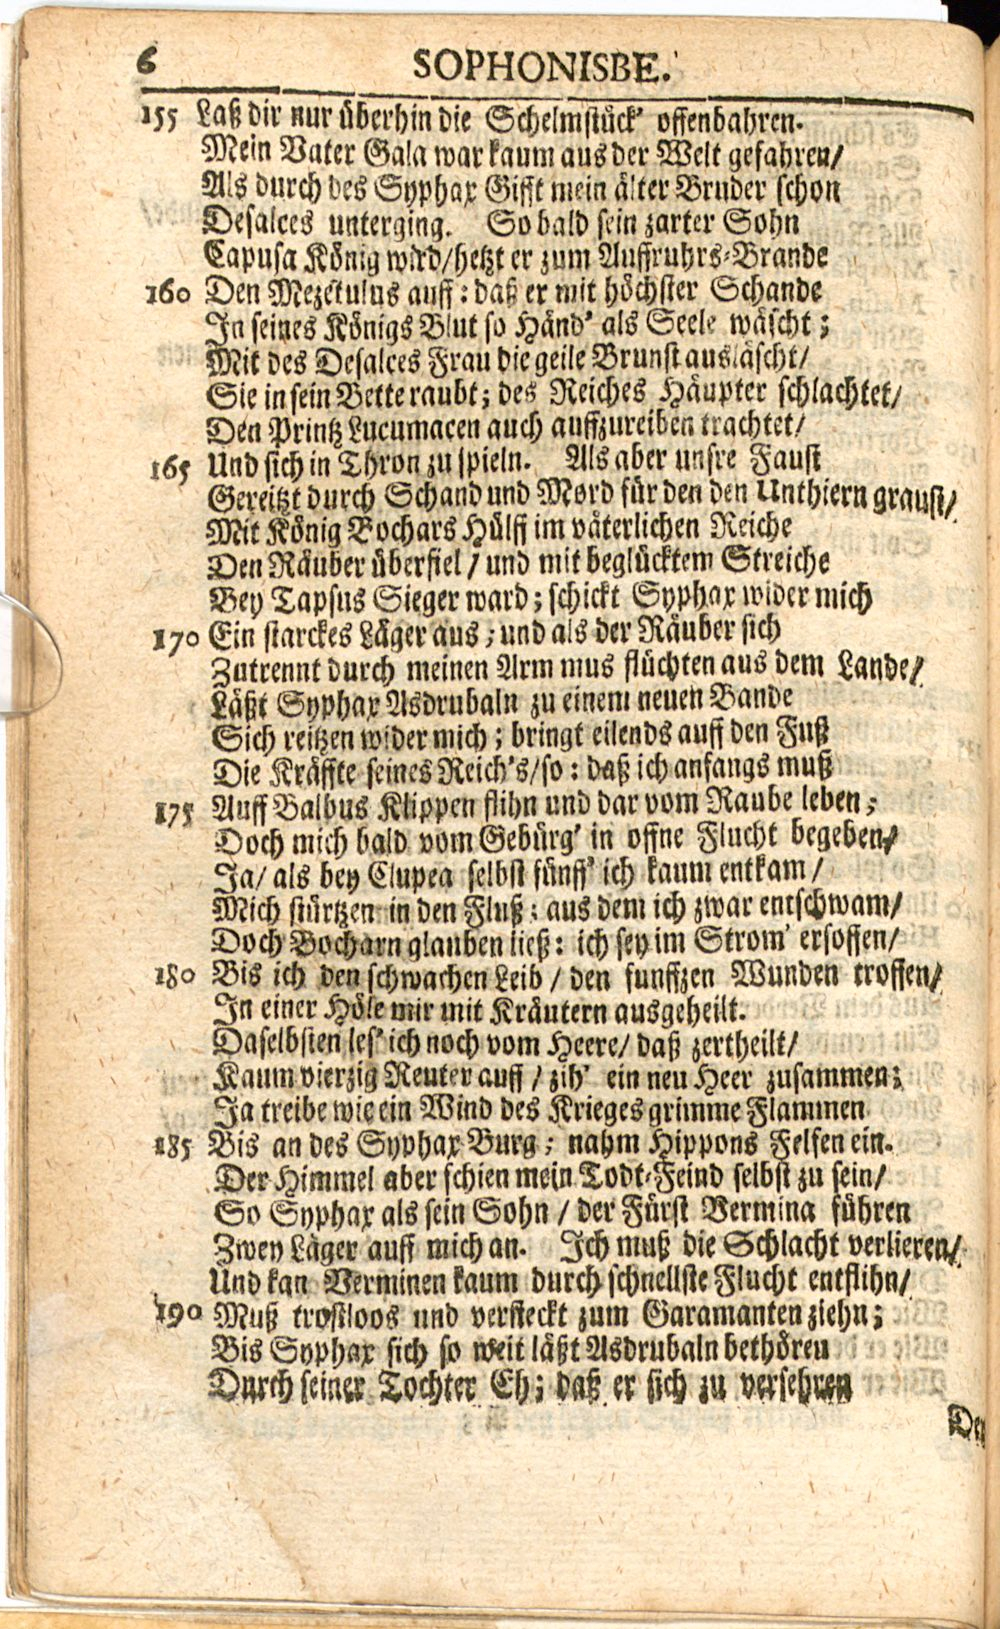 6 SOPHONISBE.
155 Laß dir nur überhin die Schelmstück' offenbahren.
Mein Vater Gala war kaum aus der Welt gefahren/
Als durch des Syphax Gifft mein älter Bruder schon
Desalces unterging. So bald sein zarter Sohn
Capusa König wird/hetzt er zum Auffruhrs-Brande
160 Den Mezetulus auff: daß er mit höchster Schande
In seines Königs Blut so Händ' als Seele wäscht;
Mit des Desalces Frau die geile Brunst ausläscht/
Sie in sein Bette raubt; des Reiches Häupter schlachtet/
Den Printz Lucumacen auch auffzureiben trachtet/
165 Und sich in Thron zu spieln. Als aber unsre Faust
Gereitzt durch Schand und Mord für den den Unthiern graust/
Mit König Bochars Hülff im väterlichen Reiche
Den Räuber überfiel / und mit beglücktem Streiche
Bey Tapsus Sieger ward; schickt Syphax wider mich
170 Ein starckes Läger aus; und als der Räuber sich
Zutrennt durch meinen Arm mus flüchten aus dem Lande/
Läßt Syphax Asdrubaln zu einem neuen Bande
Sich reitzen wider mich; bringt eilends auff den Fuß
Die Kräffte seines Reich's/so: daß ich anfangs muß
175 Auff Balbus Klippen flihn und dar vom Raube leben;
Doch mich bald vom Gebürg' in offne Flucht begeben/
Ja/ als bey Clupea selbst fünff' ich kaum entkam /
Mich stürtzen in den Fluß: aus dem ich zwar entschwam/
Doch Bocharn glauben ließ: ich sey im Strom' ersoffen/
180 Bis ich den schwachen Leib / den funffzen Wunden troffen/
In einer Höle mir mit Kräutern ausgeheilt.
Daselbsten les' ich noch vom Heere/ daß zertheilt/
Kaum vierzig Reuter auff / zih' ein neu Heer zusammen;
Ja treibe wie ein Wind des Krieges grimme Flammen
185 Bis an des Syphax Burg; nahm Hippons Felsen ein.
Der Himmel aber schien mein Todt-Feind selbst zu sein/
So Syphax als sein Sohn / der Fürst Vermina führen
Zwey Läger auff mich an. Ich muß die Schlacht verlieren/
Und kan Verminen kaum durch schnellste Flucht entflihn/
190 Muß trostloos und versteckt zum Garamanten ziehn;
Bis Syphax sich so weit läßt Asdrubaln bethören
Durch seiner Tochter Eh; daß er sich zu versehren
Der